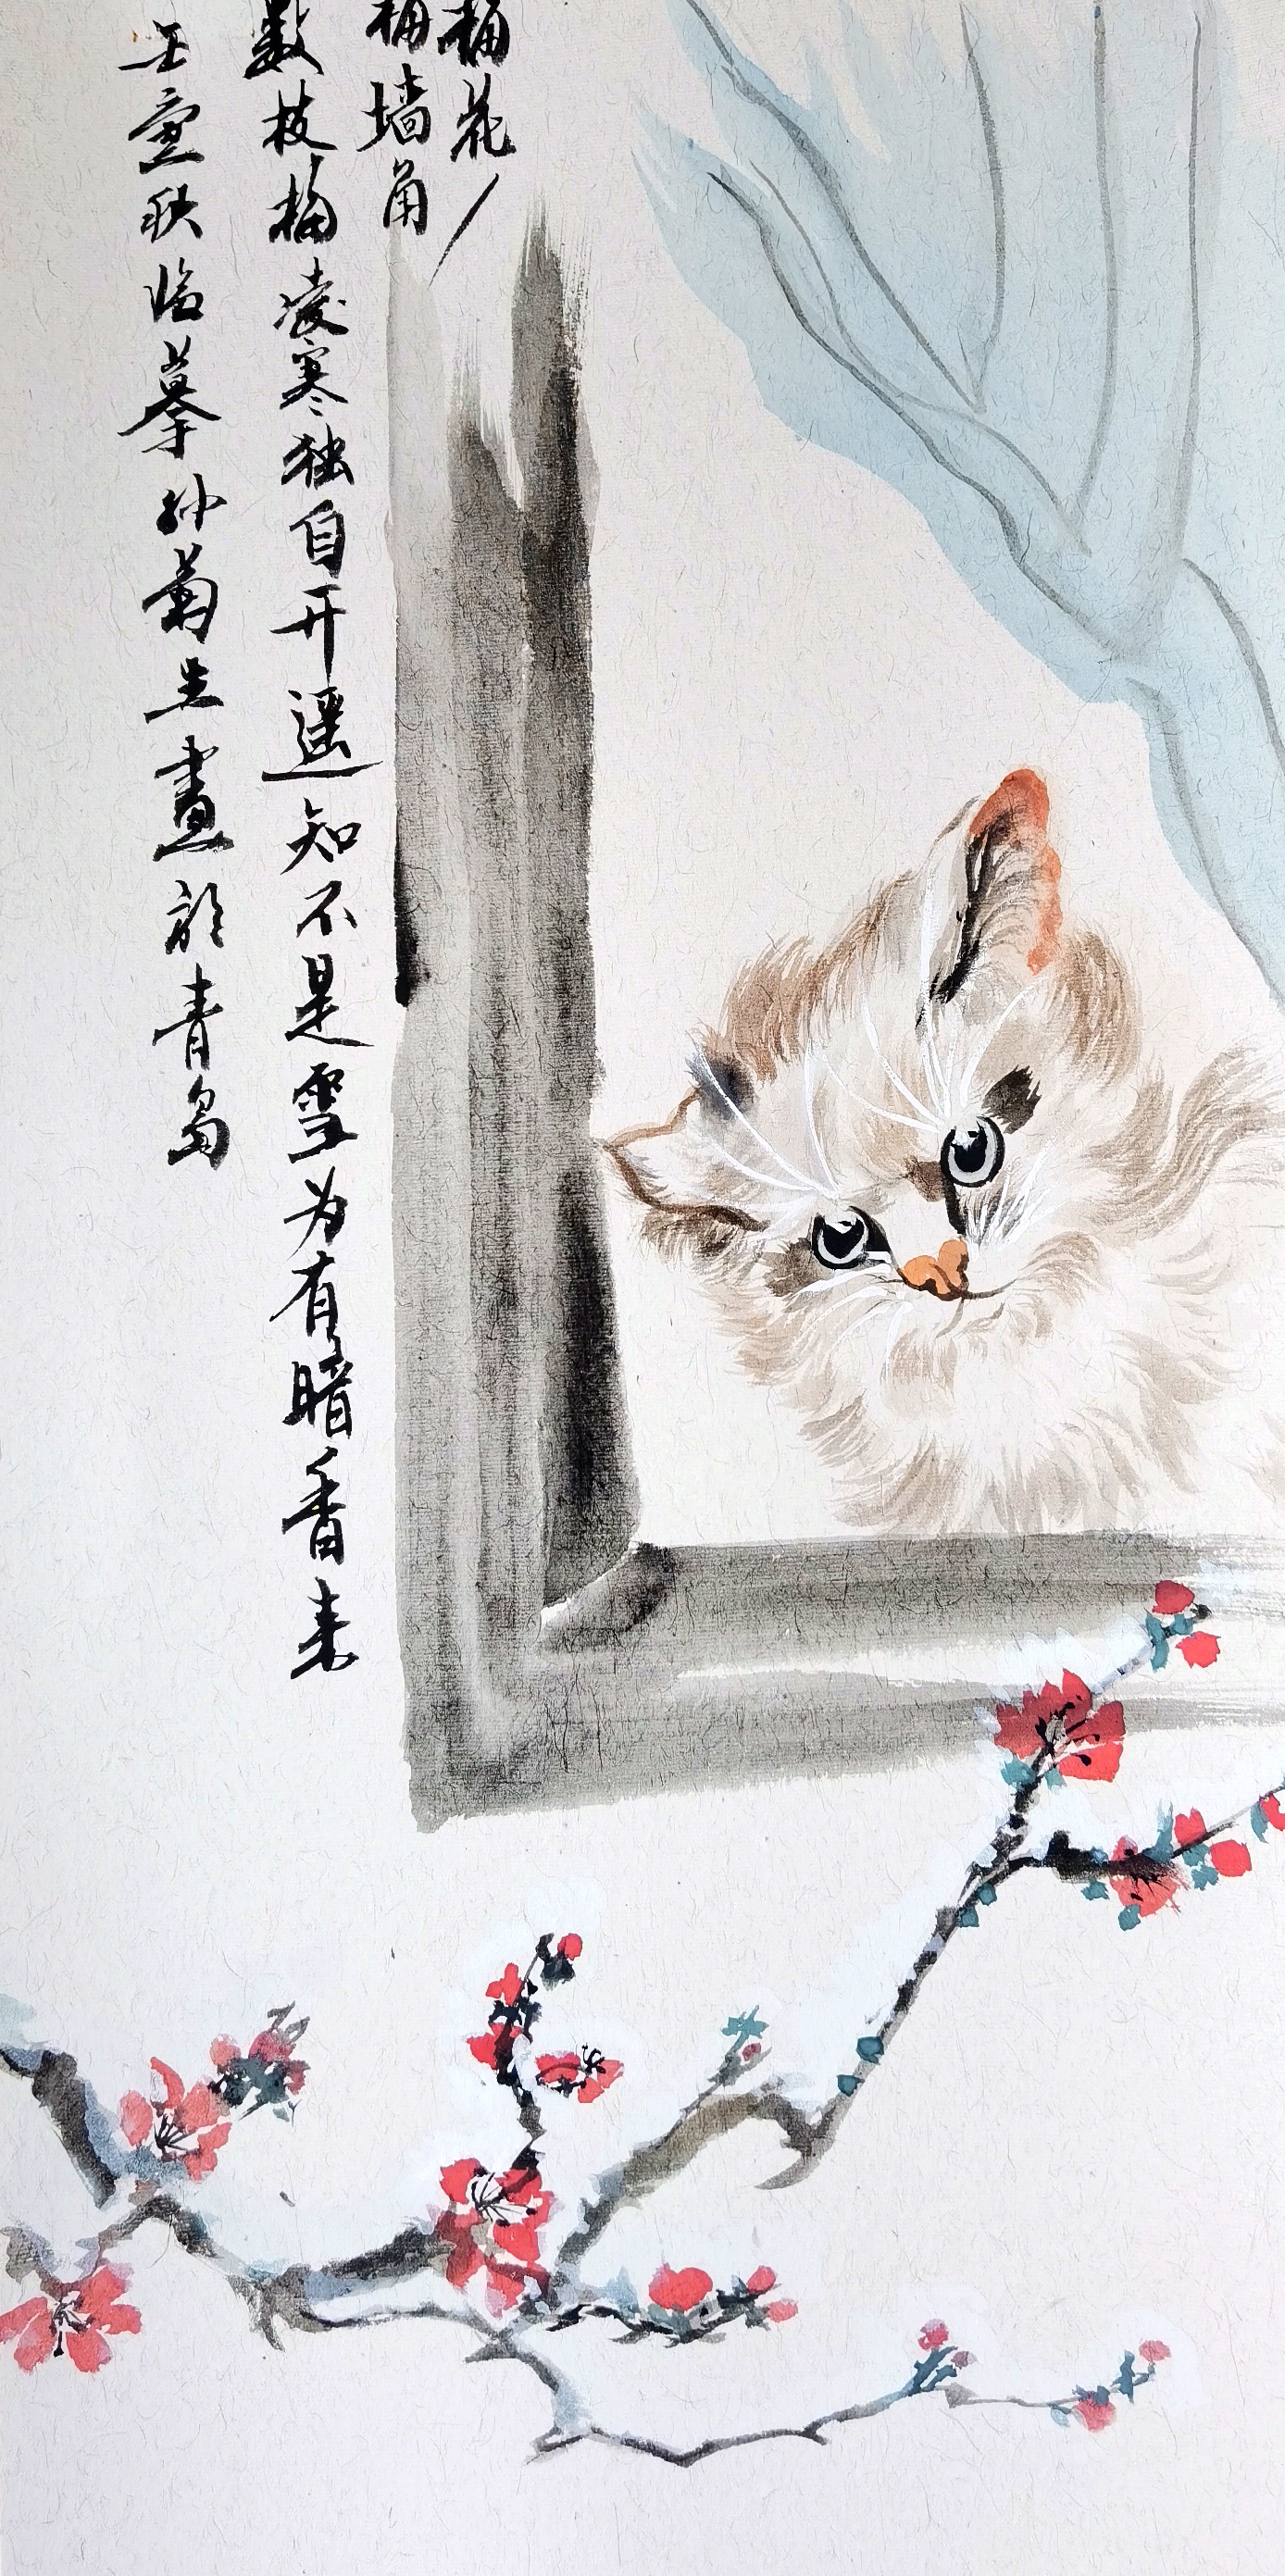 梅花
梅墙角
数枝梅凌寒独自开遥知不是雪为有暗香来
壬寅秋临摹孙菊生畫於青岛